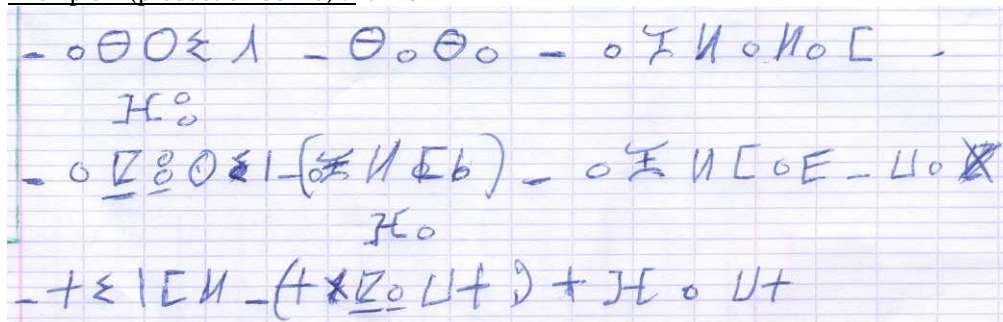 - ⴰⴱⵔⵉⴷ - ⴱⴰⴱⴰ - ⴰⵣⵍⴰⵍⴰⵎ -
ⴼⵓ
- ⴰⵇⵓⵔⵉⵏ - (ⴰⵣⵍⵎb) - ⴰⵣⵍⵎⴰⴹ - ⵡⴰ
ⴼⴰ
- ⵜⵉⵏⵎⵍ - (ⵜⵇⴰⵡⵜ) ⵜⴼⴰⵡⵜ